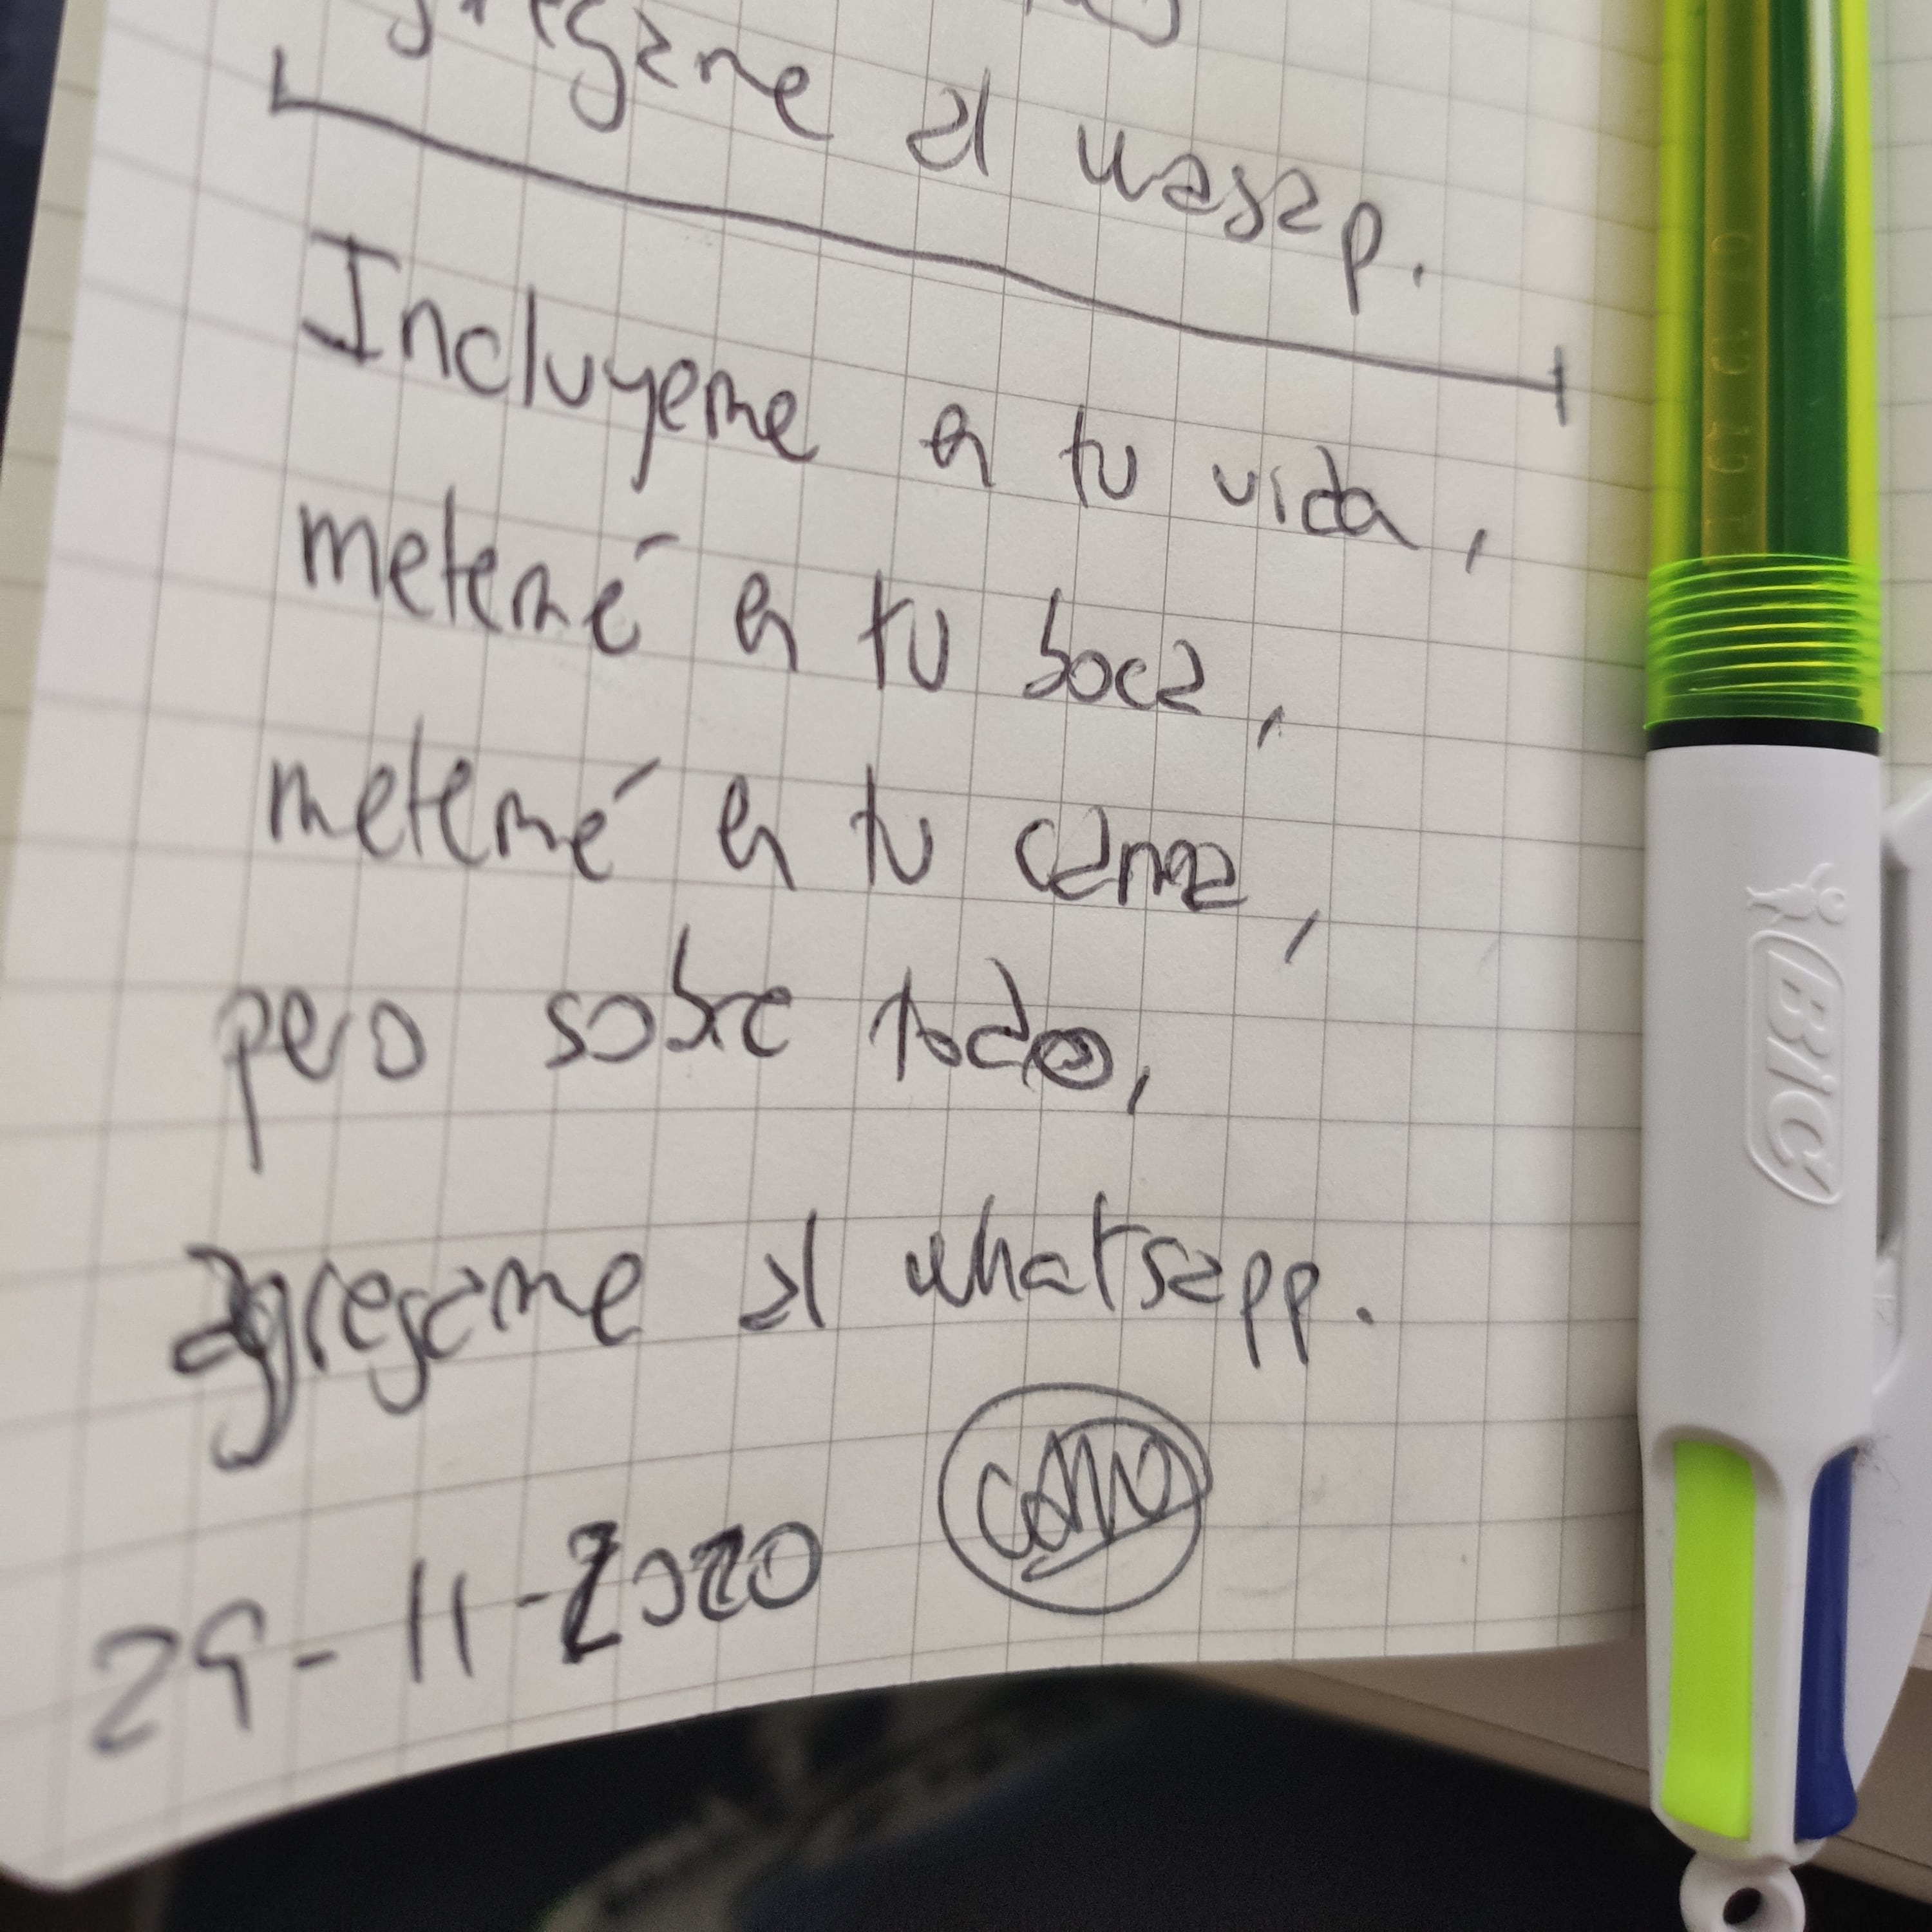 agregame al wasap.
Incluyeme en tu vida,
metemé en tu boca,
metemé en tu cama,
pero sobre todo,
agregame al whatsapp.
29-11-2020
BIC